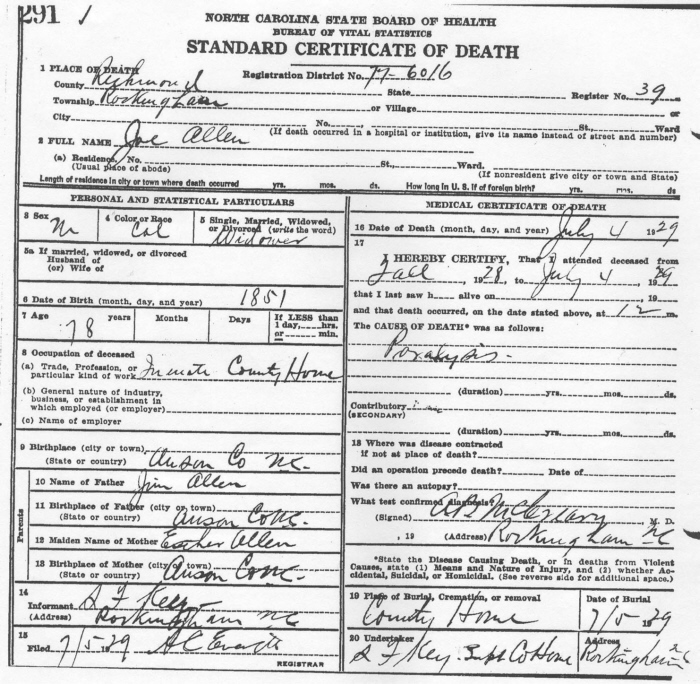 291
NORTH CAROLINA STATE BOARD OF HEALTH
BUREAU OF VITAL STATISTICS
STANDARD CERTIFICATE OF DEATH
1 PLACE OF DEATH
Registration District No. 77-6016
County Richmond State Register No. 39
Township Rockingham or Village or
City No. St., Ward
(If death occurred in a hospital or institution, give its name instead of street and number)
2 FULL NAME Joe Allen
(a) Residence, No. St., Ward.
(Usual place of abode) (If nonresident give city or town and State)
Length of residence in city or town where death occurred yrs. mos. ds. How long in U. S. if of foreign birth? yrs. mos. ds.
PERSONAL AND STATISTICAL PARTICULARS
3 Sex 4 Color or Race 5 Single, Married, Widowed, or Divorced (write the word)
M Col Widower
5a If married, widowed, or divorced
Husband of
(or) Wife of
6 Date of Birth (month, day, and year) 1851
7 Age years Months Days If LESS than 1 day, hrs. or min.
78
8 Occupation of deceased
(a) Trade, Profession, or particular kind of work Inmate County Home
(b) General nature of industry,
business, or establishment in
which employed (or employer)
(c) Name of employer
9 Birthplace (city or town)
(State or country) Anson Co NC.
Parents
10 Name of Father Jim Allen
11 Birthplace of Father (city or town)
(State or country) Anson Co NC.
12 Maiden Name of Mother Esther Allen
13 Birthplace of Mother (city of town)
(State or country) Anson Co NC.
14
Informant S F Key
(Address) Rockingham NC
15
Filed 7/5 1929
REGISTRAR
MEDICAL CERTIFICATE OF DEATH
16 Date of Death (month, day, and year) July 4 1929
17
I HEREBY CERTIFY, That I attended deceased from
Fall, 1928, to July 4, 1929
that I last saw h alive on , 19
and that death occurred, on the date stated above, at 12 m.
The CAUSE OF DEATH* was as follows:
Paralysis.
(duration) yrs. mos. ds.
Contributory
(SECONDARY)
(duration) yrs. mos. ds.
18 Where was disease contracted
if not at place of death?
Did an operation precede death? Date of
Was there an autopsy?
What test confirmed diagnosis?
(Signed) M. D.
, 19 (Address) Rockingham NC
*State the Disease Causing Death, or in deaths from Violent
Causes, state (1) Means and Nature of Injury, and (2) whether Ac-
cidental, Suicidal, or Homicidal. (See reverse side for additional space.)
19 Place of Burial, Cremation, or removal Date of Burial
County Home 7/5 1929
20 Undertaker Address
S F Key Supt Co Home Rockingham NC